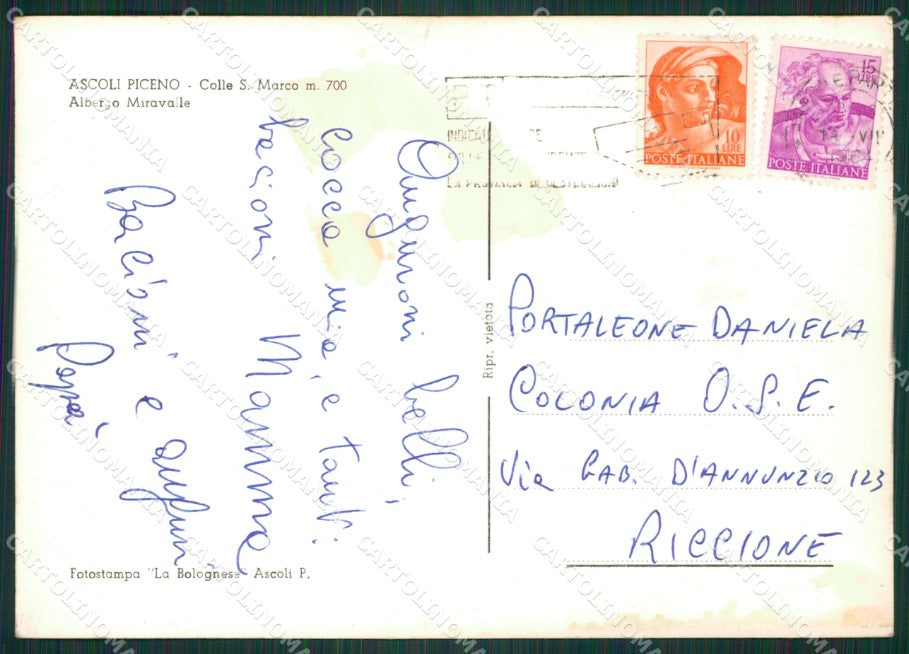 ASCOLI PICENO - Colle S. Marco m. 700
Albergo Miravalle
10
LIRE
POSTE ITALIANE
15
LIRE
POSTE ITALIANE
LA PROVINCIA DI DESTINAZIONE
Auguroni belli,
cocca mia e tanti
bacioni Mamma
Bacioni e auguri
Papà
Ripr. vietata
PORTALEONE DANIELA
COLONIA O.S.E.
Via GAB. D'ANNUNZIO 123
RICCIONE
Fotostampa "La Bolognese" Ascoli P.
CARTOLINOMANIA